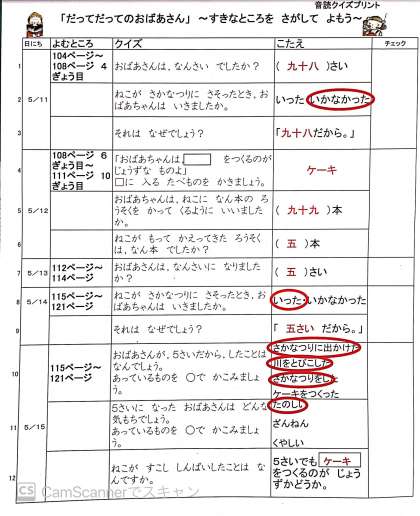 音読クイズプリント
「だってだってのおばあさん」 ～すきなところを さがして よもう～
日にち よむところ クイズ こたえ チェック
1 104ページ～
108ページ 4
ぎょう目 おばあさんは、なんさい でしたか？ （ 九十八 ）さい
2 5／11 ねこが さかなつりに さそったとき、お
ばあちゃんは いきましたか。 いった いかなかった
3 それは なぜでしょう？ 「九十八だから。」
4 108ページ 6
ぎょう目～
111ページ 10
ぎょう目 「おばあちゃんは、 をつくるのが
じょうずな ものよ」
□に 入る たべものを かきましょう。 ケーキ
5 5／12 おばあちゃんは、ねこに なん本の ろ
うそくを かって くるように いいました
か。 （ 九十九 ）本
6 ねこが もって かえってきた ろうそく
は、なん本 でしたか？ （ 五 ）本
7 5／13 112ページ～
114ページ おばあさんは、なんさいに なりました
か？ （ 五 ）さい
8 5／14 115ページ～
121ページ ねこが さかなつりに さそったとき、お
ばあちゃんは いきましたか。 いった・いかなかった
9 それは なぜでしょう？ 「 五さい だから。」
10 115ページ～
121ページ おばあさんが、5さいだから、したことは
なんでしょう。
あっているものを ○で かこみましょ
う。 さかなつりに出かけた
川をとびこした
さかなつりをした
ケーキをつくった
11 5／15 5さいに なった おばあさんは どんな
気もちでしょう。
あっているものを ○で かこみましょ
う。 たのしい
ざんねん
くやしい
12 ねこが すこし しんぱいしたことは な
んですか。 5さいでも ケーキ
をつくるのが じょう
ずかどうか。
CS CamScannerでスキャン